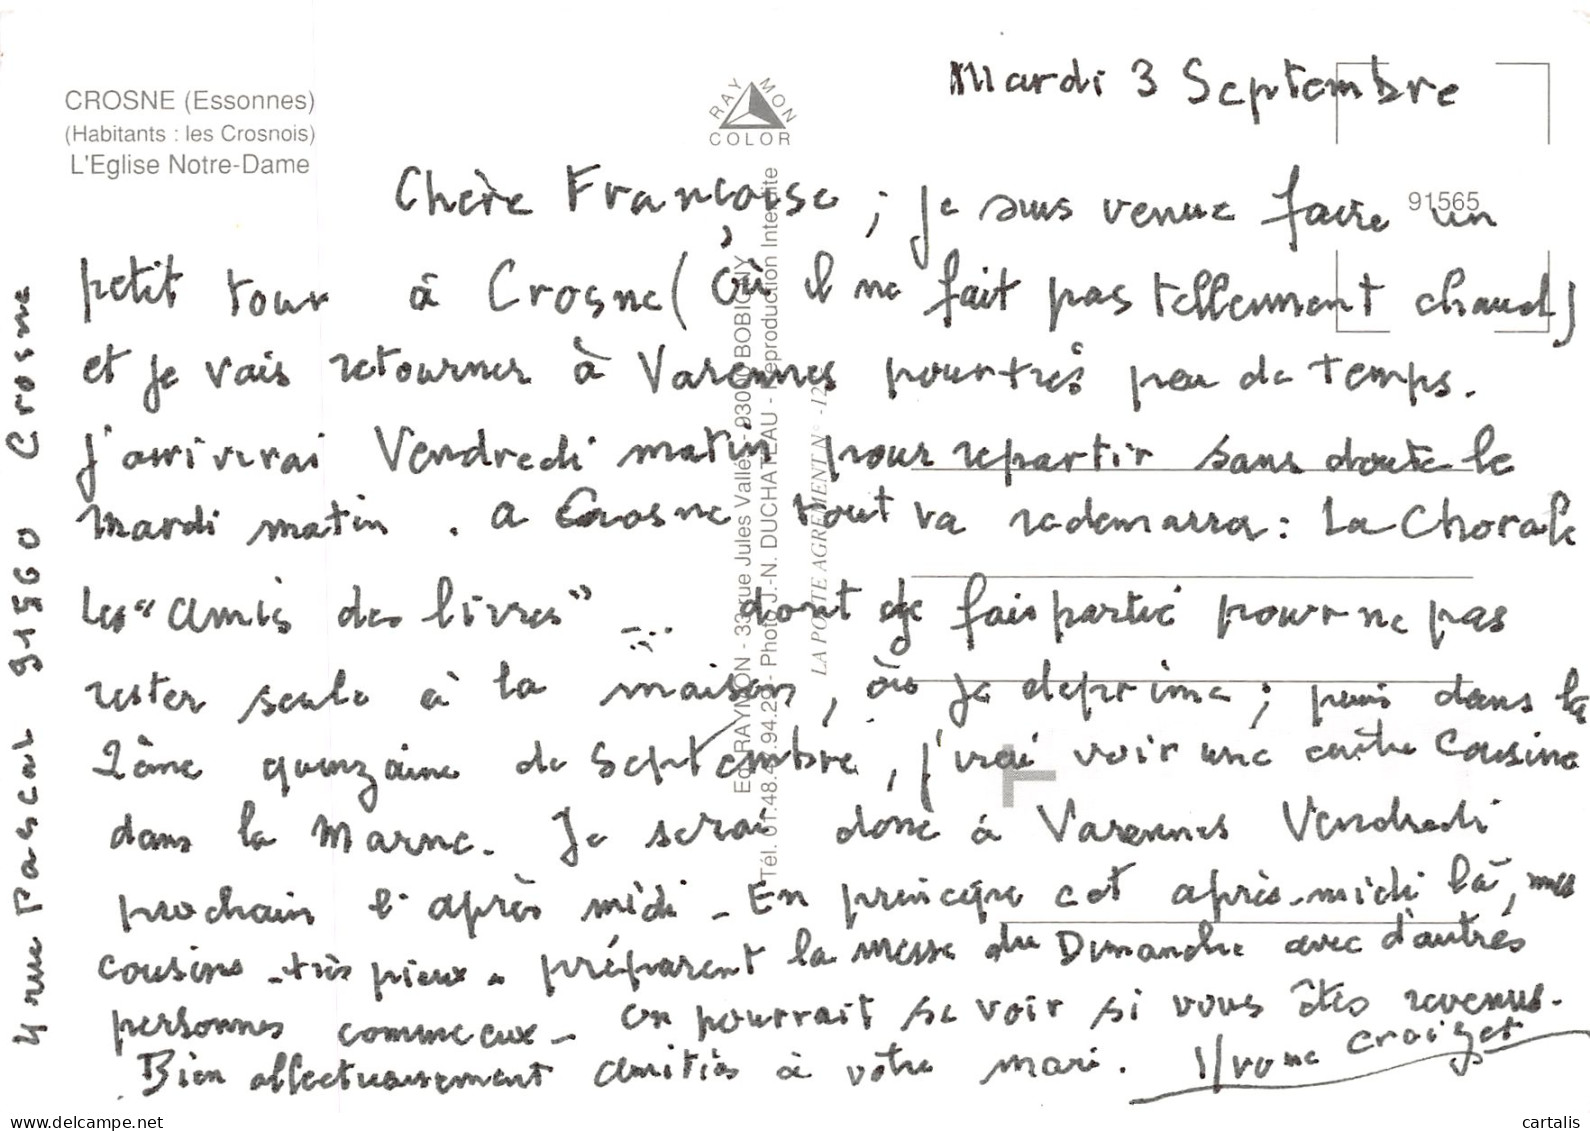 CROSNE (Essonnes)
(Habitants : les Crosnois)
L'Eglise Notre-Dame
RAYMON
COLOR
Mardi 3 Septembre
91565
Chère Françoise ; je suis venue faire un
petit tour à Crosne (où il ne fait pas tellement chaud)
et je vais retourner à Varennes pour très peu de temps.
J'arriverai Vendredi matin pour repartir sans doute le
mardi matin . a Crosne tout va redemarrer : La Chorale
les "amis des livres" ... dont je fais partie pour ne pas
rester seule à la maison, où je deprime ; puis dans la
2ème quinzaine de Septembre, j'irai voir une autre cousine
dans la Marne. Je serai donc à Varennes Vendredi
prochain l'après midi - En principe cet après-midi là, mes
cousins - très pieux - préparent la messe du Dimanche avec d'autres
personnes comme eux - on pourrait se voir si vous êtes revenus.
Bien affectueusement amitiés à votre mari. Yvonne Croizet
4 rue Pascal 91560 Crosne
Ed. RAYMON - 33, rue Jules Vallès - 93000 BOBIGNY
Tél. 01.48.47.94.29 - Photo J.-N. DUCHATEAU - Reproduction Interdite
LA POSTE AGREMENT N° -12
www.delcampe.net
cartalis